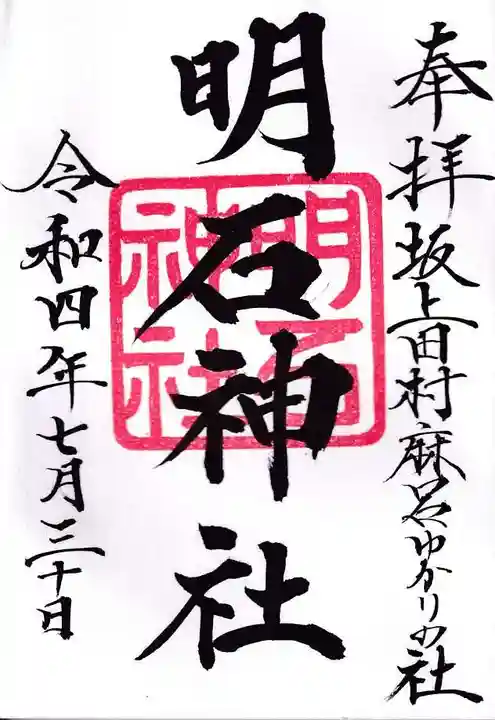 奉拝坂上田村麻呂ゆかりの社
明石神社
明石
神社
令和四年七月三十日